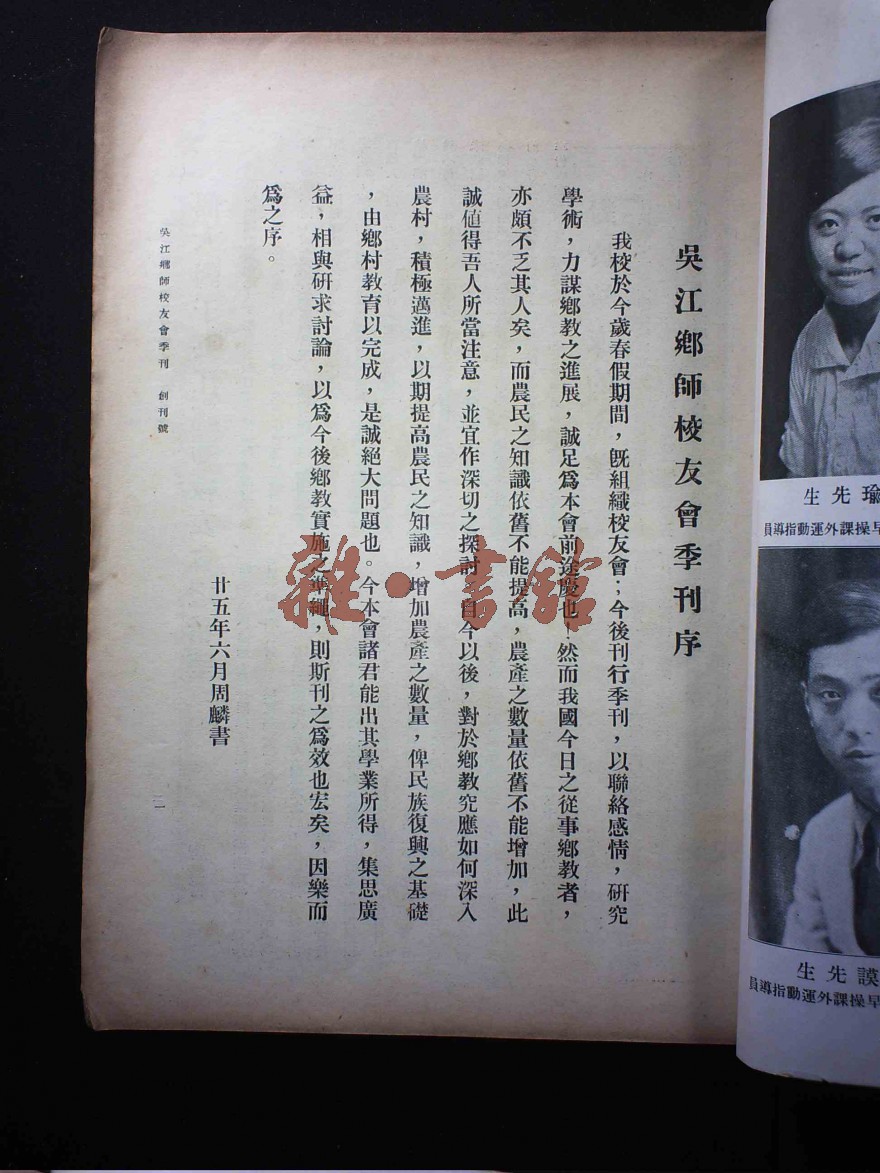 吳江鄉師校友會季刊序
我校於今歲春假期間，既組織校友會；今後刊行季刊，以聯絡感情，研究
學術，力謀鄉教之進展，誠足爲本會前途慶也！然而我國今日之從事鄉教者，
亦頗不乏其人矣，而農民之知識依舊不能提高，農產之數量依舊不能增加，此
誠値得吾人所當注意，並宜作深切之探討，自今以後，對於鄉教究應如何深入
農村，積極邁進，以期提高農民之知識，增加農產之數量，俾民族復興之基礎
，由鄉村教育以完成，是誠絕大問題也。今本會諸君能出其學業所得，集思廣
益，相與研求討論，以爲今後鄉教實施之準繩，則斯刊之爲效也宏矣，因樂而
爲之序。
廿五年六月周麟書
吳江鄉師校友會季刊　創刊號
雜·書館
瑜先生
早操課外運動指導員
謨先生
早操課外運動指導員